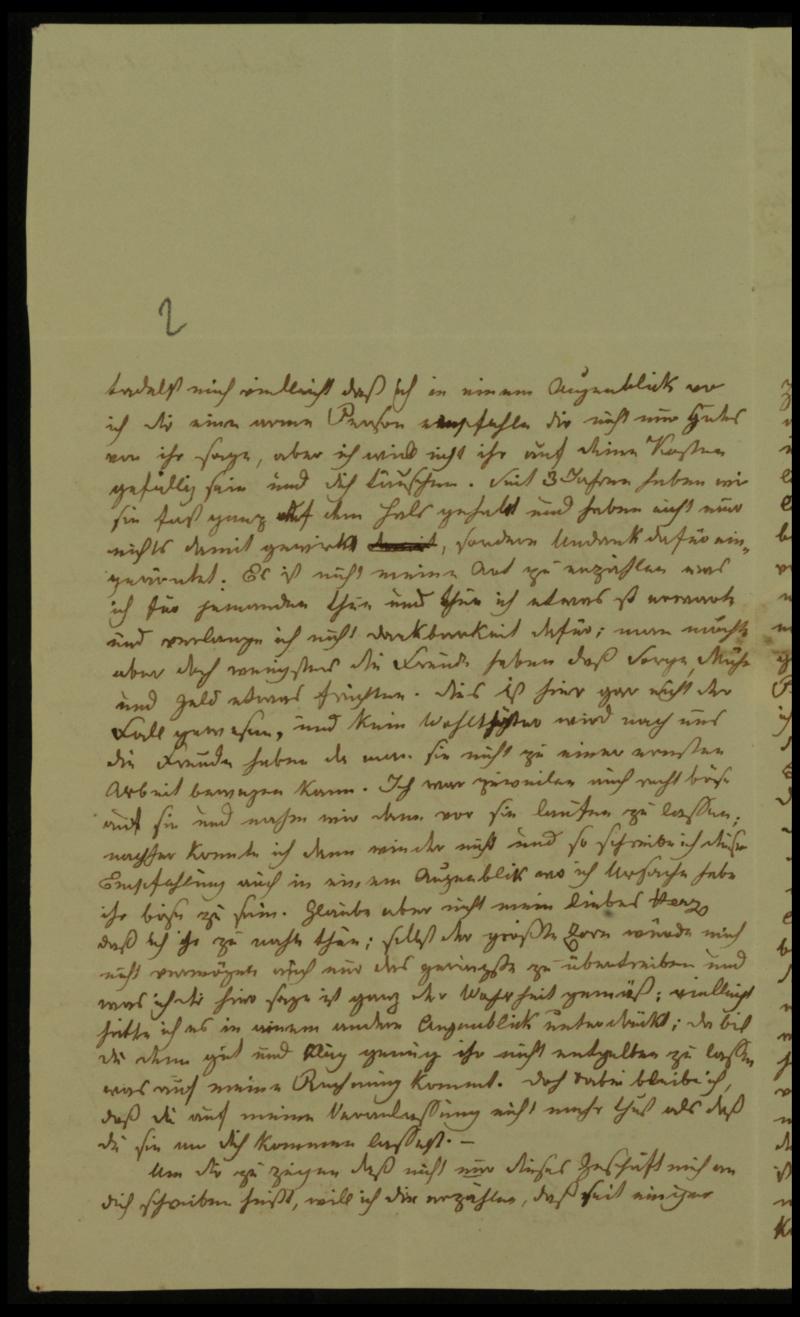 2
tadelst mich vielleicht daß ich in einem Augenblick wo
ich dir eine arme Person empfehle dir nicht nur Gutes
von ihr sage, aber ich will nicht ihr auf deine Kosten
gefällig sein und dich täuschen. Seit 3 Jahren haben wir
sie fast ganz auf dem Hals gehabt und haben nicht nur
nichts damit gewirkt, sondern Undank dafür ein„
geärntet. Es ist nicht meine Art zu erzählen was
ich für jemanden thue und thue ich etwas so erwarte
und verlange ich nicht Dankbarkeit dafür; man möchte
aber doch wenigstens die Freude haben daß Sorge, Mühe
und Geld etwas fruchten. Dies ist hier gar nicht der
Fall gewesen, und kein Wohlthäter wird nach uns
die Freude haben da man sie nicht zu einer ernsten
Arbeit bewegen kann. Ich war zuweilen auch recht böse
auf sie und nahm mir denn vor sie laufen zu lassen;
nachher konnte ich denn wieder nicht und so schreibe ich diese
Empfehlung auch in einem Augenblik wo ich Ursache habe
ihr böse zu sein. Glaube aber nicht mein liebes Herz
daß ich ihr zu nahe thue; selbst der größte Zorn würde mich
nicht vermögen auch nur das geringste zu übertreiben und
was ich dir hier sage ist ganz der Wahrheit gemäß; vielleicht
hätte ich es in einem andern Augenblick unterdrückt; du bist
du denn gut und klug genug ihr nicht entgelten zu lassen
was auf meine Rechnung kommt. Doch dabei bleibe ich,
daß du auf meine Veranlassung nicht mehr thust als daß
du sie an dich kommen lassest. —
Um dir zu zeigen daß nicht nur dieses Geschäft mich an
dich schreiben heißt, will ich dir erzählen, daß seit einiger